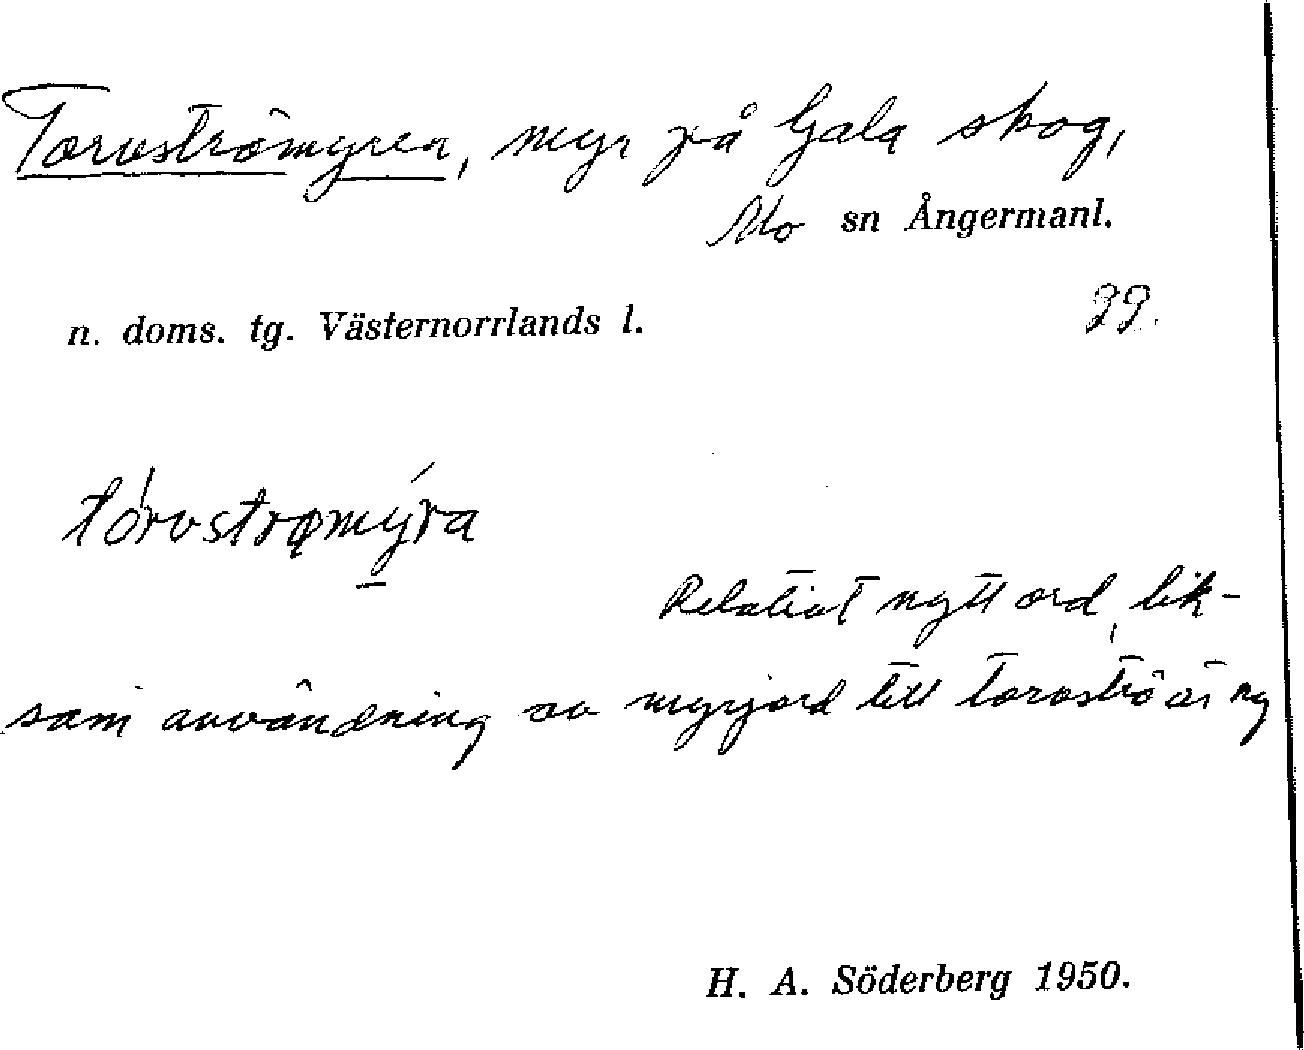 Torvströmyren, myr på Gala skog,
Mo sn Ångermanl.
n. doms. tg. Västernorrlands l. 99.
tórvstrømýra
Relativt nytt ord, lik-
som användning av myrjord till torvströ är ny
H. A. Söderberg 1950.